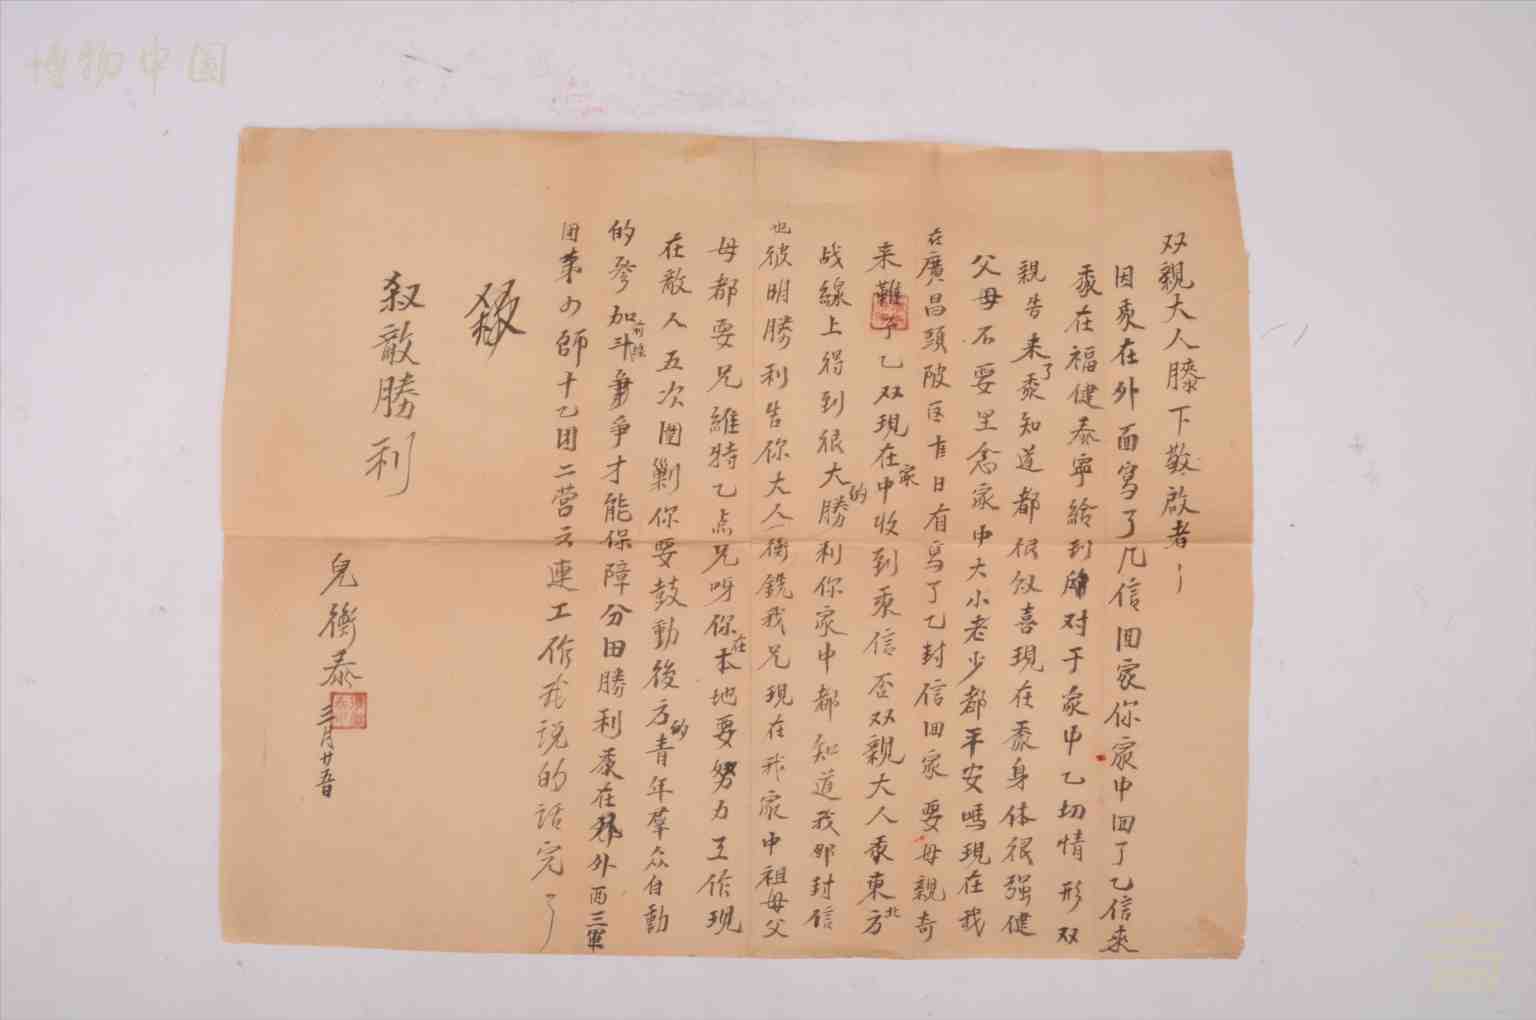 双親大人膝下敬啟者
因豕在外面寫了几信回家你家中回了乙信來
豕在福健泰寧給到 对于家中乙切情形双
親告來了豕知道都很欢喜現在豕身体很强健
父母不要里念家中大小老少都平安嗎現在我
在廣昌頭陂区 日有寫了乙封信回家要母親寄
來 乙双現在家中收到豕信否双親大人豕東北方
战線上得到很大的勝利你家中都知道我那封信
也彼明勝利告你大人衡銑我兄現在我家中祖母父
母都要兄維特乙点兄呀你在本地要努力工作現
在敵人五次圍剿你要鼓動後方的青年羣众自動
的參加前線斗爭才能保障分田勝利豕在外面三軍
团 四師十乙团二营三連工作我説的話完了
敬
殺敵勝利
兒衡泰
三月廿五日
博物中国